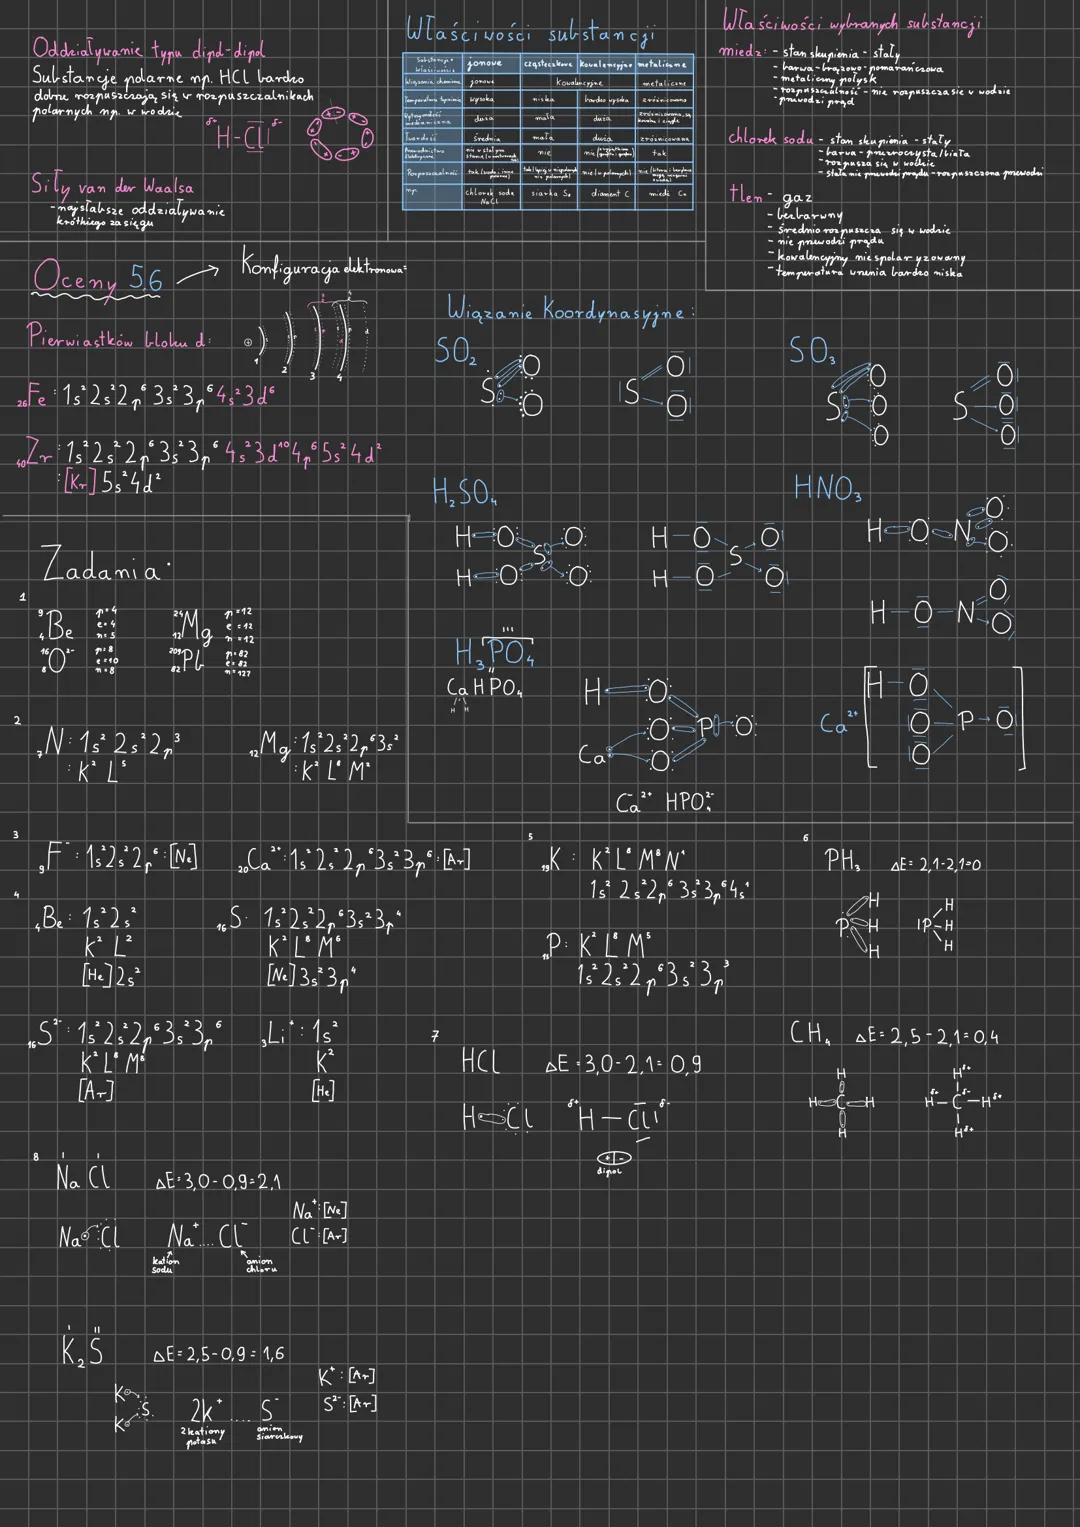 Oddziaływanie typu dipol-dipol
Substancje polarne np. HCl bardzo
dobrze rozpuszczają się w rozpuszczalnikach
polarnych np. w wodzie
δ+ H-Cl δ-
Siły van der Waalsa
- najsłabsze oddziaływanie
krótkiego zasięgu
Właściwości substancji
Substancje właściwości jonowe cząsteczkowe kowalencyjne metaliczne
Wiązania chemiczne jonowe kowalencyjne metaliczne
Temperatura topnienia wysoka niska bardzo wysoka zróżnicowana
Wytrzymałość mechaniczna duża mała duża
Twardość średnia mała duża zróżnicowana
Przewodnictwo elektryczne nie w stałym nie nie tak
Rozpuszczalność tak nie
np. chlorek sodu NaCl siarka S₈ diament C miedź Cu
Właściwości wybranych substancji
miedź: - stan skupienia - stały
- barwa - brązowo-pomarańczowa
- metaliczny połysk
- rozpuszczalność - nie rozpuszcza sie w wodzie
- przewodzi prąd
chlorek sodu - stan skupienia - stały
- barwa - przezroczysta/biała
- rozpusza się w wodzie
- stała nie przewodzi prądu - rozpuszczona przewodzi
tlen - gaz
- bezbarwny
- średnio rozpuszcza się w wodzie
- nie przewodzi prądu
- kowalencyjny niespolaryzowany
- temperatura wrzenia bardzo niska
Oceny 5,6 → Konfiguracja elektronowa:
Pierwiastków bloku d:
1 2 3 4
₂₆Fe: 1s²2s²2p⁶3s²3p⁶4s²3d⁶
₄₀Zr: 1s²2s²2p⁶3s²3p⁶4s²3d¹⁰4p⁶5s²4d²
: [Kr] 5s²4d²
Wiązanie Koordynasyjne:
SO₂
S O O
S O O
SO₃
S O O O
S O O O
H₂SO₄
H O S O
H O O
H-O S O
H-O O
HNO₃
H O N O O
H-O-N O O
H₃PO₄
CaHPO₄
H H
H O
O P O
Ca O
Ca²⁺ HPO₄²⁻
Ca²⁺ [H-O O O P→O]
Zadania:
1
⁹₄Be p=4 e=4 n=5
²⁴₁₂Mg p=12 e=12 n=12
¹⁶₈O²⁻ p=8 e=10 n=8
²⁰⁹₈₂Pb p=82 e=82 n=127
2
₇N: 1s²2s²2p³
: K² L⁵
₁₂Mg: 1s²2s²2p⁶3s²
: K² L⁸ M²
3
₉F⁻: 1s²2s²2p⁶: [Ne]
₂₀Ca²⁺: 1s²2s²2p⁶3s²3p⁶: [Ar]
4
₄Be: 1s²2s²
K² L²
[He]2s²
₁₆S: 1s²2s²2p⁶3s²3p⁴
K² L⁸ M⁶
[Ne]3s²3p⁴
₁₆S²⁻: 1s²2s²2p⁶3s²3p⁶
K² L⁸ M⁸
[Ar]
₃Li⁺: 1s²
K²
[He]
5
₁₉K: K² L⁸ M⁸ N¹
1s²2s²2p⁶3s²3p⁶4s¹
₁₅P: K² L⁸ M⁵
1s²2s²2p⁶3s²3p³
6
PH₃ ΔE=2,1-2,1=0
P H H H
P H H H
CH₄ ΔE=2,5-2,1=0,4
H
H C H
H
Hδ+
Hδ+-Cδ--Hδ+
Hδ+
7
HCl ΔE=3,0-2,1=0,9
H Cl δ+H-Clδ-
+ -
dipol
8
NaCl ΔE=3,0-0,9=2,1
Na⁺: [Ne]
Cl⁻: [Ar]
Na Cl Na⁺....Cl⁻
kation sodu
anion chloru
K₂S ΔE=2,5-0,9=1,6
K⁺: [Ar]
S²⁻: [Ar]
K
K S
2K⁺.....S⁻
2 kationy potasu
anion siarczkowy